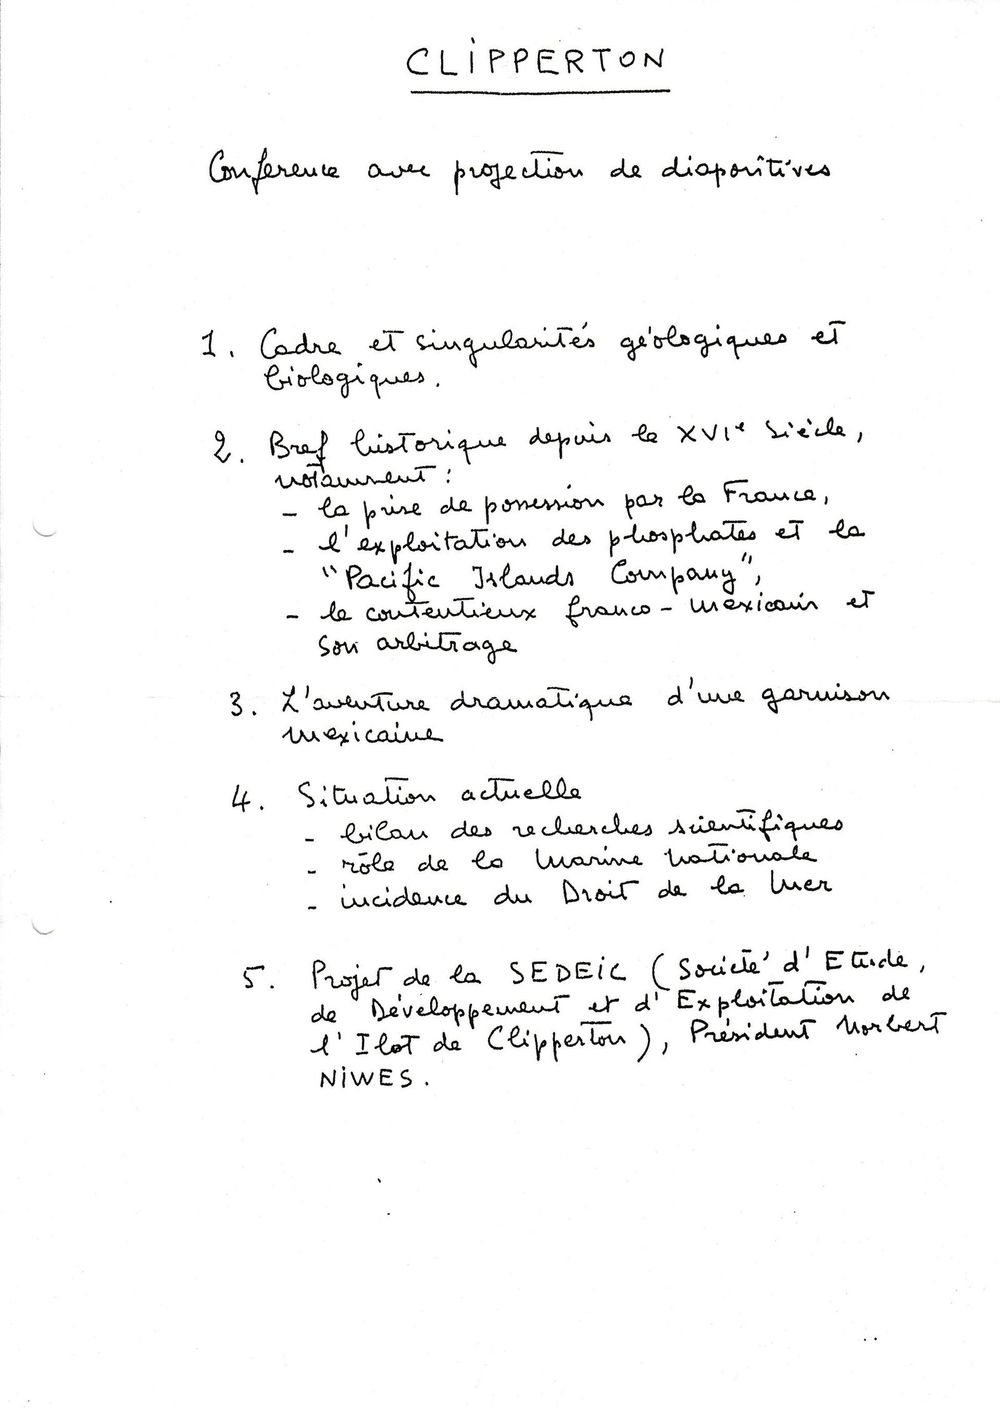 CLIPPERTON
Conference avec projection de diapositives
1. Cadre et singularités géologiques et
biologiques.
2. Bref historique depuis le XVIe siècle,
notamment :
- la prise de possession par la France,
- l'exploitation des phosphates et la
"Pacific Islands Company",
- le contentieux franco-mexicain et
son arbitrage
3. L'aventure dramatique d'une garnison
mexicaine
4. Situation actuelle
- bilan des recherches scientifiques
- rôle de la Marine Nationale
- incidence du Droit de la Mer
5. Projet de la SEDEIC (Société d'Etude,
de Développement et d'Exploitation de
l'Ilot de Clipperton), Président Norbert
NIWES.